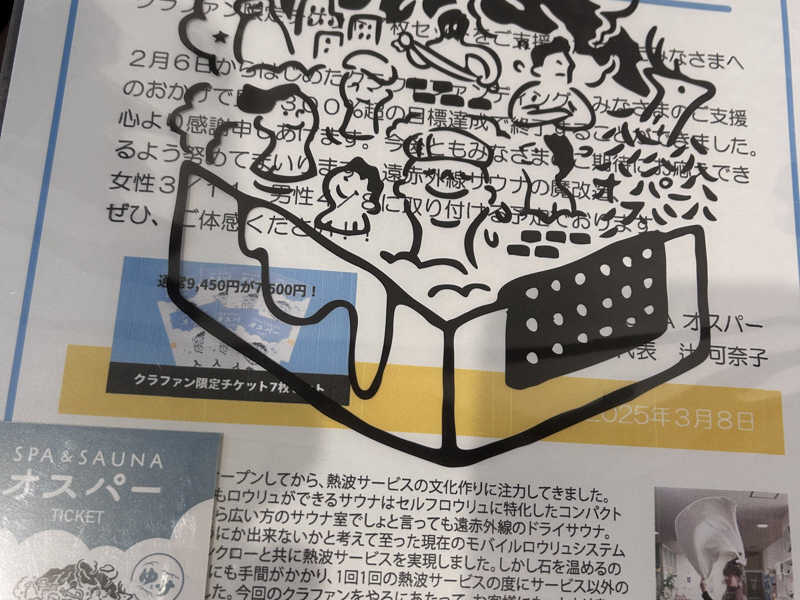 クラファン限定 枚セットをご支援 みなさまへ
2月6日からはじめたクラウドファンディング、みなさまのご支援
のおかげで 300%超の目標達成で終了することができました。
心より感謝申しあげます。今後ともみなさまのご期待にお応えでき
るよう努めてまいります。遠赤外線サウナの魔改造
女性3 男性 に取り付ける予定でおります
ぜひ、ご体感くださ
通常9,450円が7,500円！
オスパー
クラファン限定チケット7枚セット
オスパー
代表 辻 可奈子
2025年3月8日
SPA&SAUNA
オスパー
TICKET
ゆず
ープンしてから、熱波サービスの文化作りに注力してきました。
もロウリュができるサウナはセルフロウリュに特化したコンパクト
ら広い方のサウナ室でしょと言っても遠赤外線のドライサウナ。
にか出来ないかと考えて至った現在のモバイルロウリュシステム
ンクローと共に熱波サービスを実現しました。しかし石を温めるの
にも手間がかかり、1回1回の熱波サービスの度にサービス以外の
した。今回のクラファンをやるにあたって、お客様に